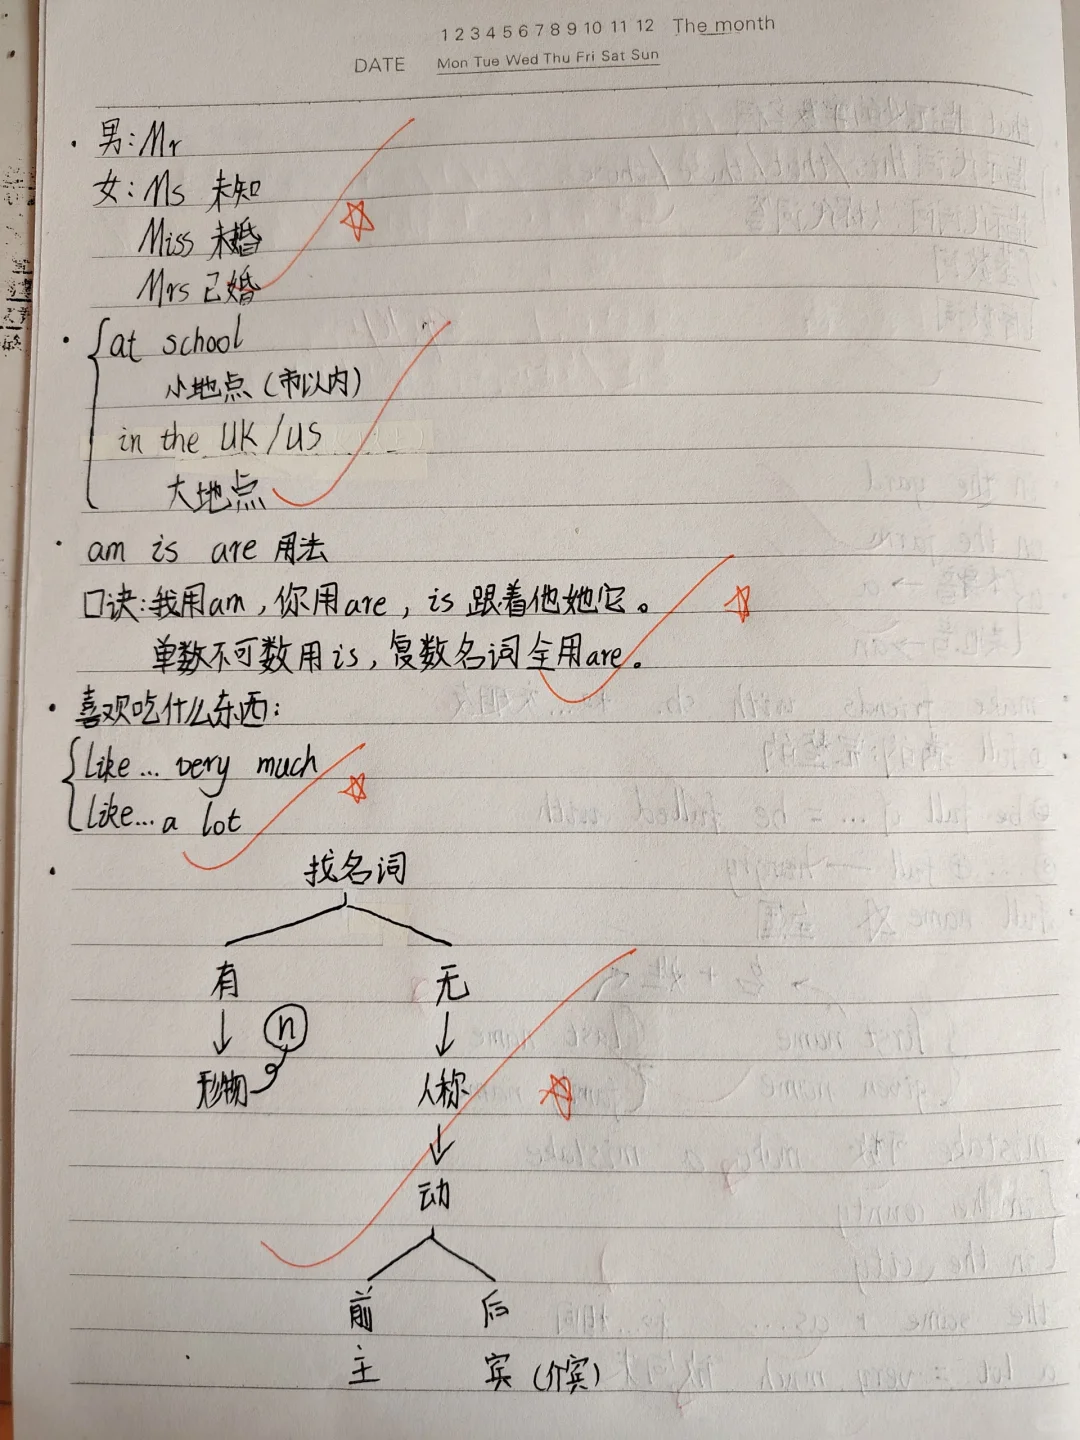 1 2 3 4 5 6 7 8 9 10 11 12 The month
DATE Mon Tue Wed Thu Fri Sat Sun
男:Mr
女:Ms 未知
Miss 未婚
Mrs 已婚
at school
小地点(市以内)
in the UK/US
大地点
am is are 用法
口诀:我用am,你用are,is 跟着他她它。
单数不可数用is,复数名词全用are。
喜欢吃什么东西:
like... very much
like...a lot
找名词
有 无
n
形物 人称
动
前 后
主 宾(介宾)